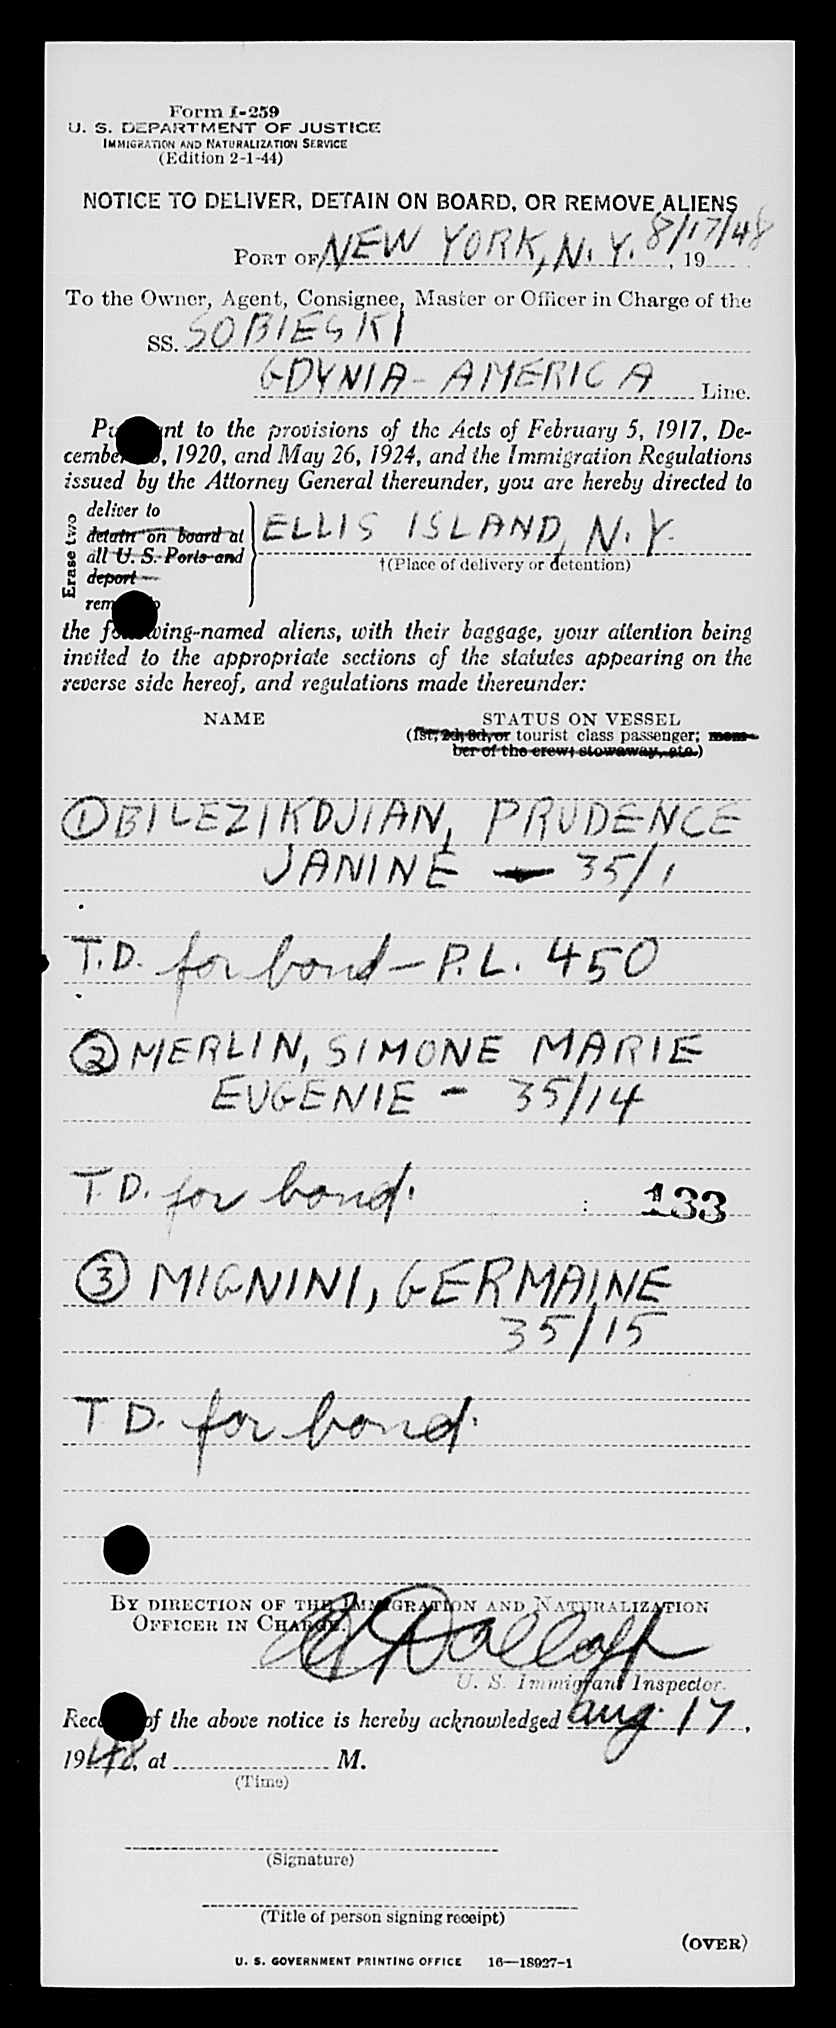 Form I-259
U. S. DEPARTMENT OF JUSTICE
IMMIGRATION AND NATURALIZATION SERVICE
(Edition 2-1-44)
NOTICE TO DELIVER, DETAIN ON BOARD, OR REMOVE ALIENS
PORT OF NEW YORK, N. Y. 8/17/48, 19
To the Owner, Agent, Consignee, Master or Officer in Charge of the
SS. SOBIESKI
GDYNIA-AMERICA Line.
Pu nt to the provisions of the Acts of February 5, 1917, De-
cembe , 1920, and May 26, 1924, and the Immigration Regulations
issued by the Attorney General thereunder, you are hereby directed to
deliver to
detain on board at ELLIS ISLAND, N. Y.
all U. S. Ports and †(Place of delivery or detention)
deport
rem o
Erase two
the fo wing-named aliens, with their baggage, your attention being
invited to the appropriate sections of the statutes appearing on the
reverse side hereof, and regulations made thereunder:
NAME STATUS ON VESSEL
(1st, 2d, 3d, or tourist class passenger; mem-
ber of the crew; stowaway, etc.)
① BILEZIKDJIAN, PRUDENCE
JANINE - 35/1
T.D. for bond - P.L. 450
② MERLIN, SIMONE MARIE
EUGENIE - 35/14
T.D. for bond. 133
③ MIGNINI, GERMAINE
35/15
T.D. for bond.
BY DIRECTION OF THE IMMIGRATION AND NATURALIZATION
OFFICER IN CHARGE.
U. S. Immigrant Inspector.
Rece of the above notice is hereby acknowledged Aug. 17,
1948, at M.
(Time)
(Signature)
(Title of person signing receipt)
(OVER)
U. S. GOVERNMENT PRINTING OFFICE 16—18927-1